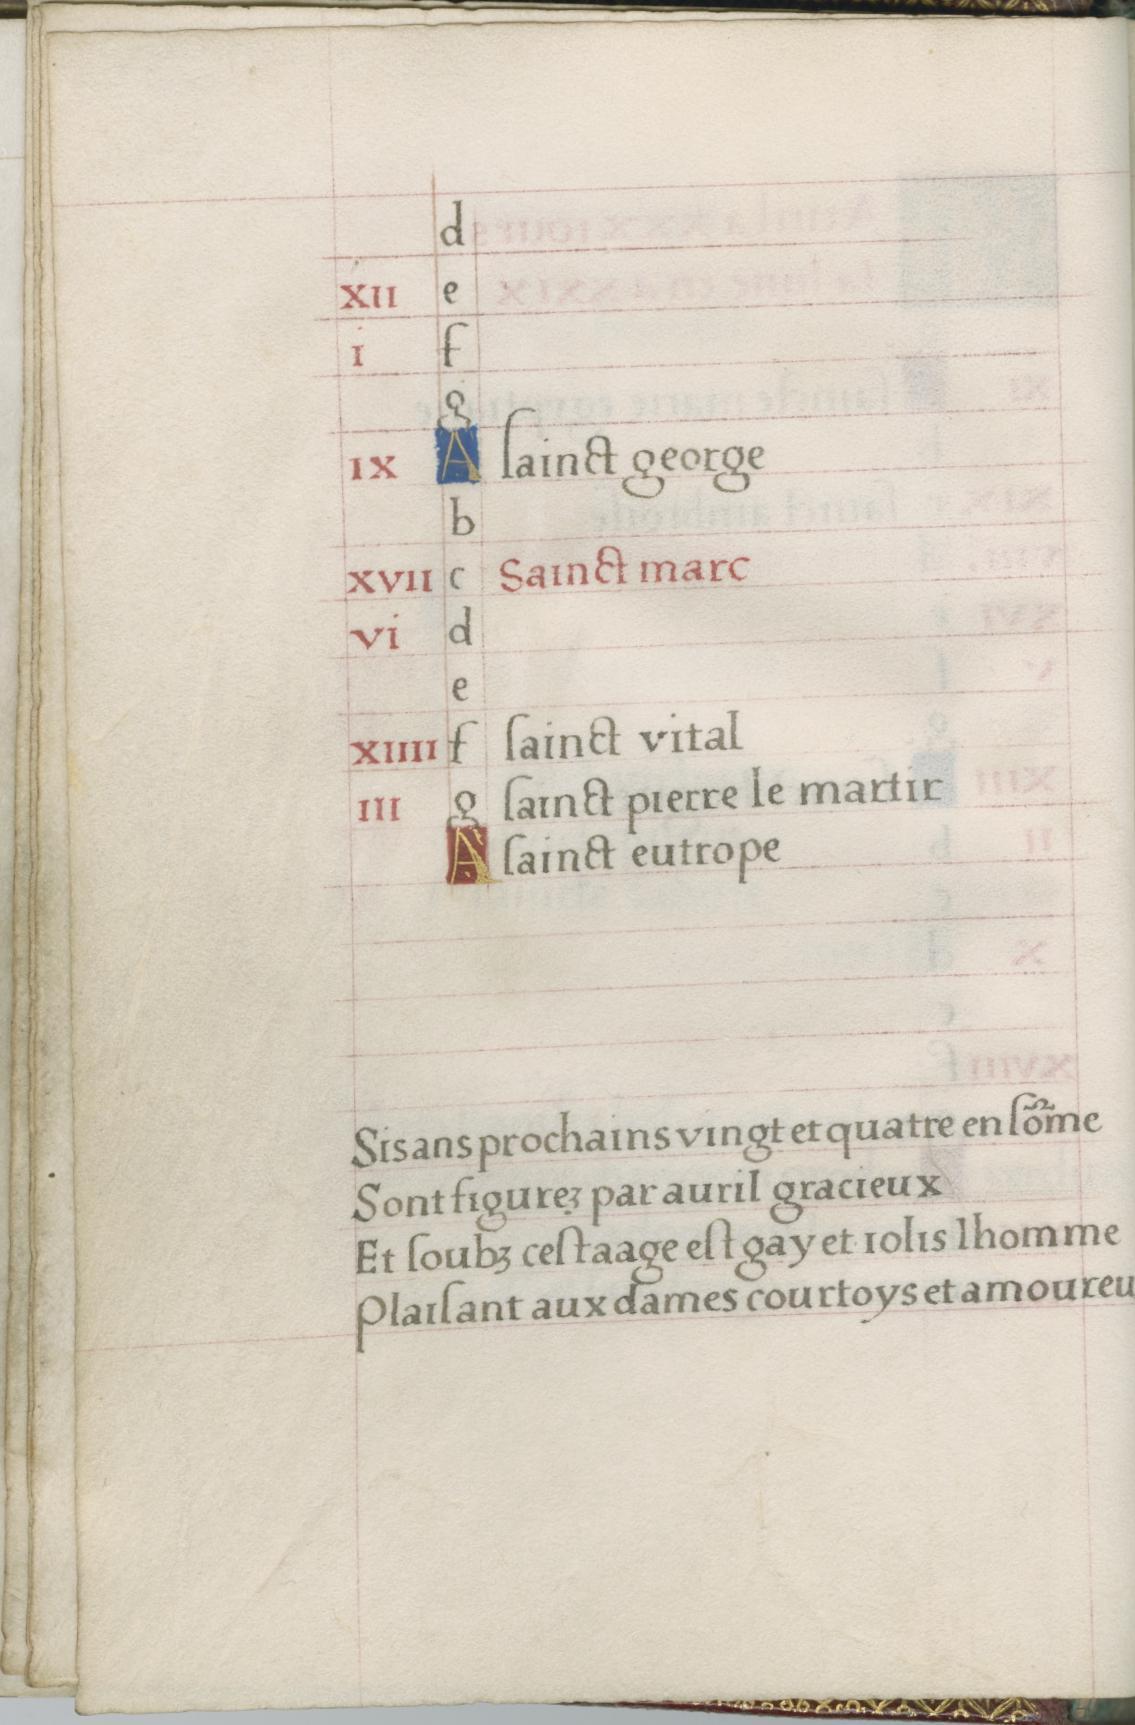 d
XII e
I f
g
IX A sainct george
b
XVII c Sainct marc
VI d
e
XIIII f sainct vital
III g sainct pierre le martir
A sainct eutrope
Sis ans prochains vingt et quatre en sõme
Sont figurez par auril gracieux
Et soubz cest aage est gay et iolis lhomme
Plaisant aux dames courtoys et amoureu